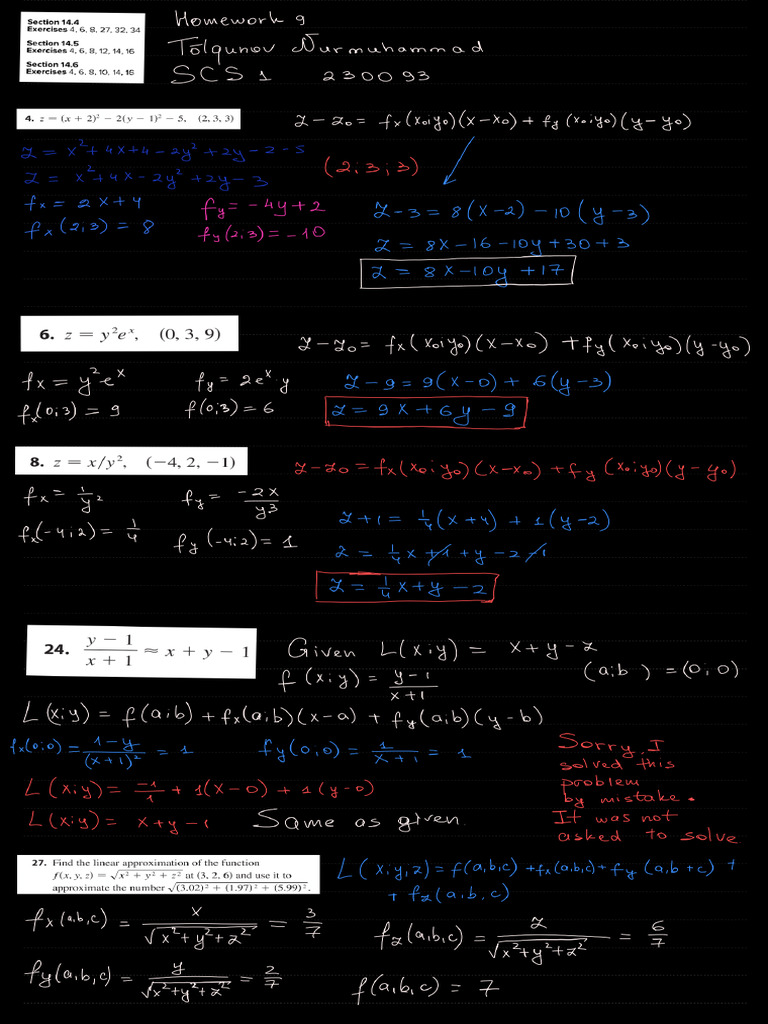 Section 14.4
Exercises 4, 6, 8, 27, 32, 34
Section 14.5
Exercises 4, 6, 8, 12, 14, 16
Section 14.6
Exercises 4, 6, 8, 10, 14, 16
Homework 9
Tolqunov Nurmuhammad
SCS 1 230093
4. z = (x + 2)² − 2(y − 1)² − 5, (2, 3, 3)
z − z₀ = fx(x₀;y₀)(x − x₀) + fy(x₀;y₀)(y − y₀)
z = x² + 4x + 4 − 2y² + 2y − 2 − 5
(2;3;3)
z = x² + 4x − 2y² + 2y − 3
fx = 2x + 4
fy = −4y + 2
z − 3 = 8(x − 2) − 10(y − 3)
fx(2;3) = 8
fy(2;3) = −10
z = 8x − 16 − 10y + 30 + 3
z = 8x − 10y + 17
6. z = y²eˣ, (0, 3, 9)
z − z₀ = fx(x₀;y₀)(x − x₀) + fy(x₀;y₀)(y − y₀)
fx = y²eˣ
fy = 2eˣ·y
z − 9 = 9(x − 0) + 6(y − 3)
fx(0;3) = 9
f(0;3) = 6
z = 9x + 6y − 9
8. z = x/y², (−4, 2, −1)
z − z₀ = fx(x₀;y₀)(x − x₀) + fy(x₀;y₀)(y − y₀)
fx = 1/y²
fy = −2x/y³
fx(−4;2) = 1/4
fy(−4;2) = 1
z + 1 = 1/4(x + 4) + 1(y − 2)
z = 1/4x + 1 + y − 2 − 1
z = 1/4x + y − 2
24. (y − 1)/(x + 1) ≈ x + y − 1
Given L(x;y) = x + y − z
f(x;y) = (y − 1)/(x + 1)
(a;b) = (0;0)
L(x;y) = f(a;b) + fx(a;b)(x − a) + fy(a;b)(y − b)
fx(0;0) = (1 − y)/(x + 1)² = 1
fy(0,0) = 1/(x + 1) = 1
L(x;y) = −1/1 + 1(x − 0) + 1(y − 0)
L(x;y) = x + y − 1 Same as given.
Sorry, I
solved this
problem
by mistake.
It was not
asked to solve
27. Find the linear approximation of the function
f(x, y, z) = √(x² + y² + z²) at (3, 2, 6) and use it to
approximate the number √((3.02)² + (1.97)² + (5.99)²).
L(x,y,z) = f(a,b,c) + fx(a,b,c) + fy(a,b+c) +
+ fz(a,b,c)
fx(a,b,c) = x/√(x² + y² + z²) = 3/7
fz(a,b,c) = z/√(x² + y² + z²) = 6/7
fy(a,b,c) = y/√(x² + y² + z²) = 2/7
f(a,b,c) = 7